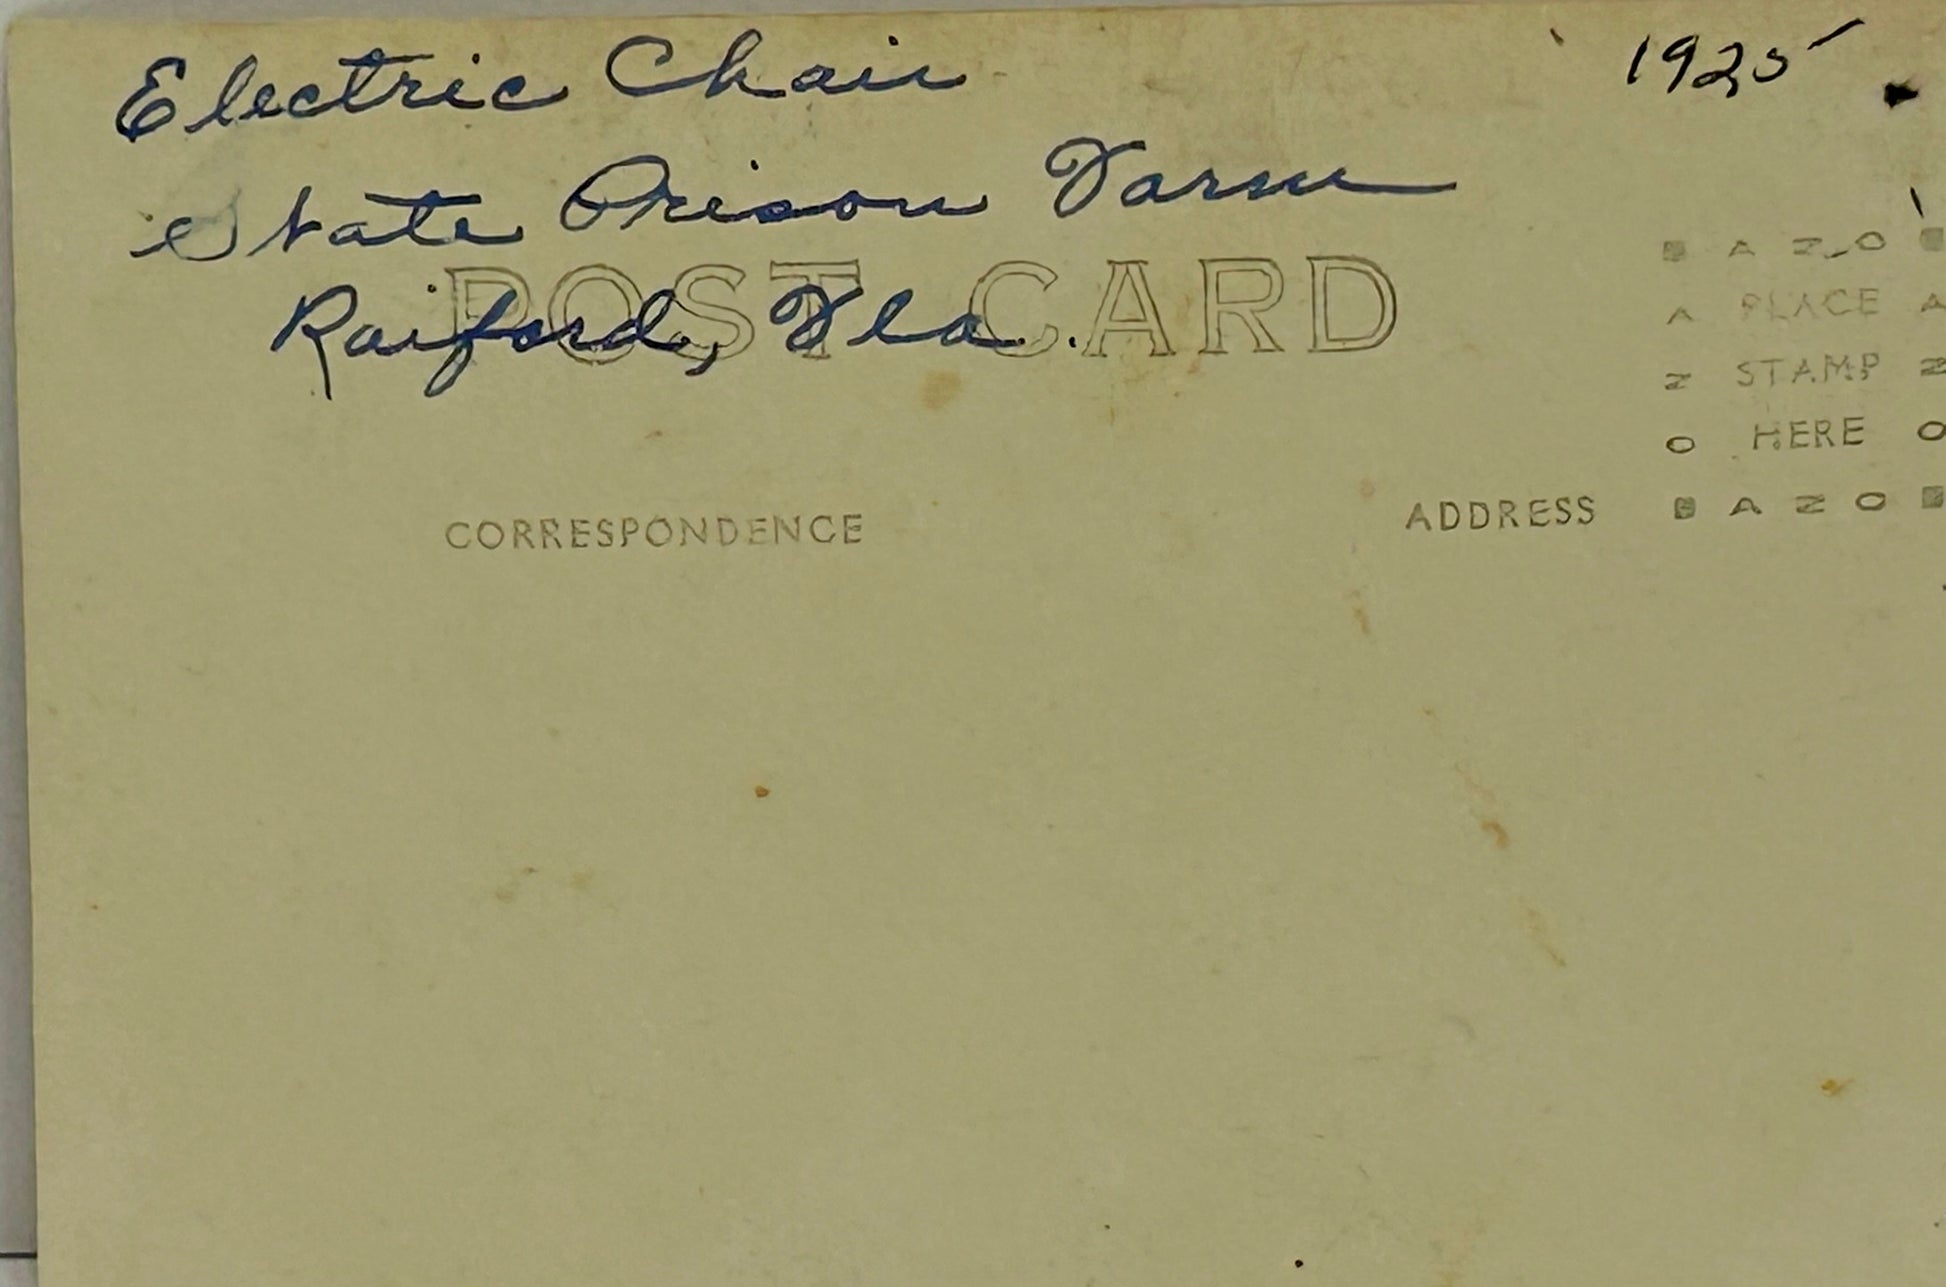 Electric Chair
1925
State Prison Farm
Raiford, Fla.
POST CARD
AZO
A PLACE A
Z STAMP Z
O HERE O
AZO
CORRESPONDENCE
ADDRESS